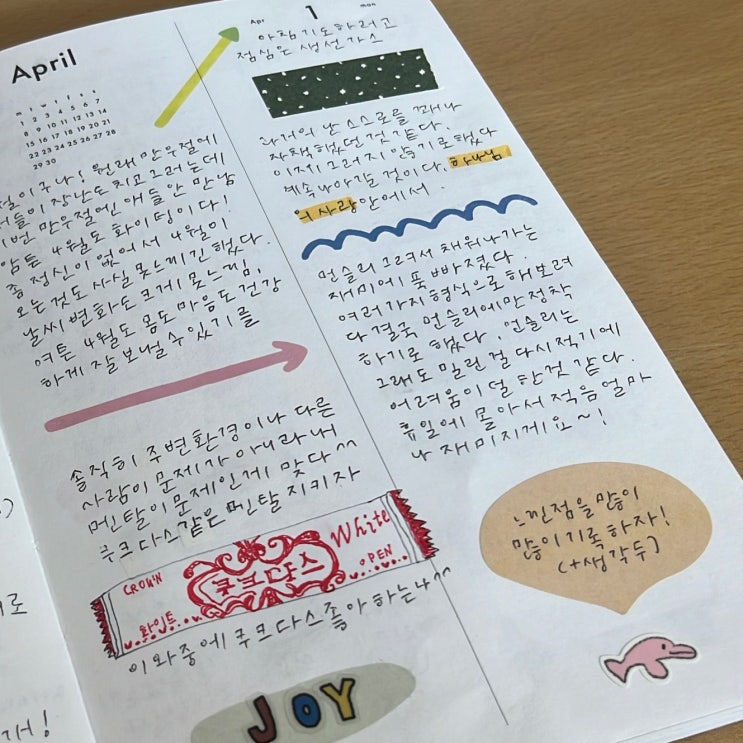 April
m t w t f s s
1 2 3 4 5 6 7
8 9 10 11 12 13 14
15 16 17 18 19 20 21
22 23 24 25 26 27 28
29 30
절이구나! 원래 만우절에
애들이 장난도 치고 그러는데
이번 만우절에는 애들 안 만남
암튼 4월도 화이팅이다!
좀 정신이 없어서 4월이
오는 것도 사실 못느끼긴 했다.
날씨 변화도 크게 못느낌,
여튼 4월도 몸도 마음도 건강
하게 잘 보낼 수 있기를
솔직히 주변환경이나 다른
사람이 문제가 아니라 내
멘탈이 문제인게 맞다^^
쿠크다스같은 멘탈 지키자
CROWN
쿠크다스
White
OPEN
화이트
이와중에 쿠크다스 좋아하는 나^^
JOY
Apr
1
mon
아침 기도하려고
점심은 생선가스
과거의 난 스스로를 꽤나
자책했던 것 같다.
이제 그러지 않기로 했다
계속 나아갈 것이다. 하나님
의 사랑 안에서.
먼슬리 그려서 채워나가는
재미에 푹 빠졌다.
여러가지 형식으로 해보려
다 결국 먼슬리에만 정착
하기로 했다. 먼슬리는
그래도 밀린 걸 다시 적기에
어려움이 덜 한것 같다.
휴일에 몰아서 적음 얼마
나 재미지게요~!
느낀점을 많이
많이 기록하자!
(+생각두)